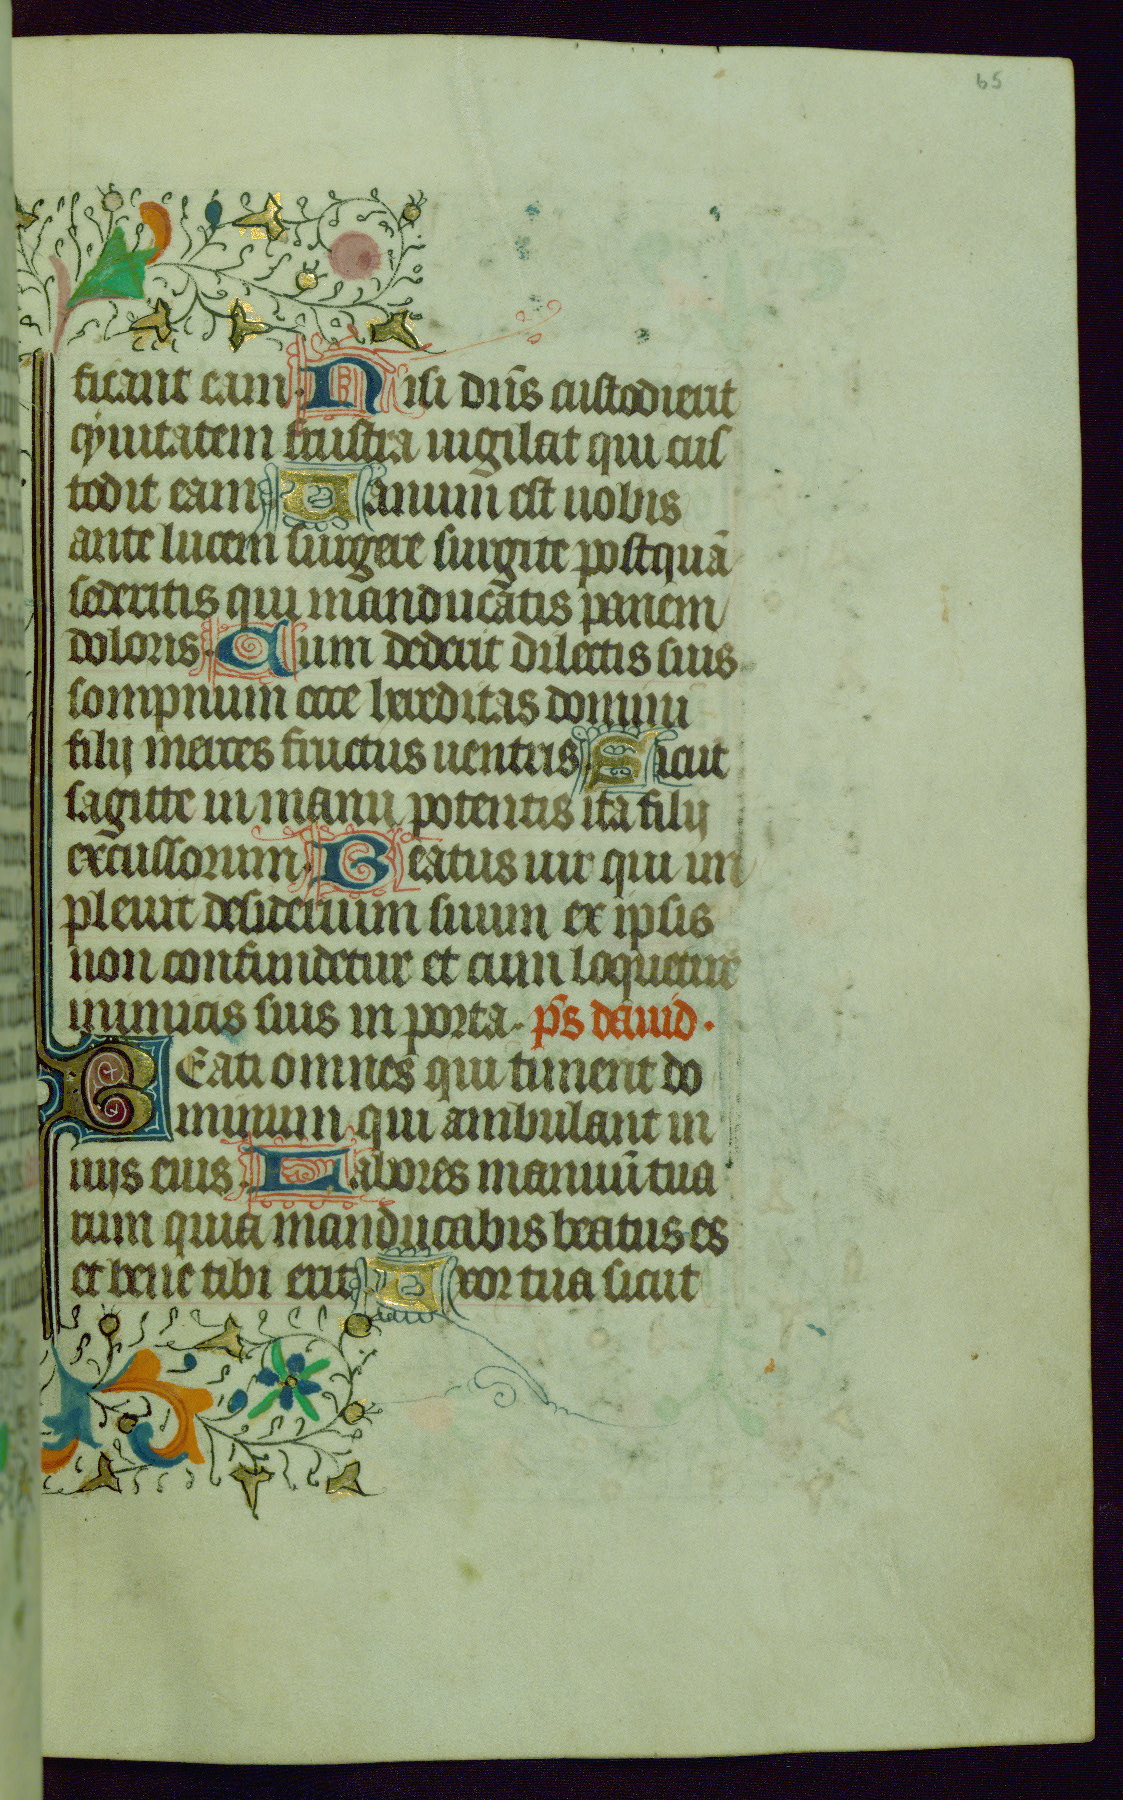 65
ficant eam. Nisi dñs custodierit
cyuitatem frustra uigilat qui cus
todit eam. Uanum est uobis
ante lucem surgere surgite postquā
sederitis qui manducatis panem
doloris. Cum dederit dilectis suis
sompnum ecce hereditas domini
filij merces fructus uentris. Sicut
sagitte in manu potentis ita filij
excussorum. Beatus uir qui im
pleuit desiderium suum ex ipsis
non confundetur et cum loquetur
inimicis suis in porta. ps dauid.
Beati omnes qui timent do
minum qui ambulant in
uijs eius. Labores manuū tua
rum quia manducabis beatus es
et bene tibi erit. Uxor tua sicut